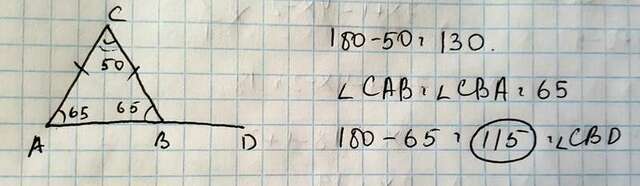 C
50
65 65
A B D
180-50=130.
∠CAB=∠CBA=65
180-65=115=∠CBD